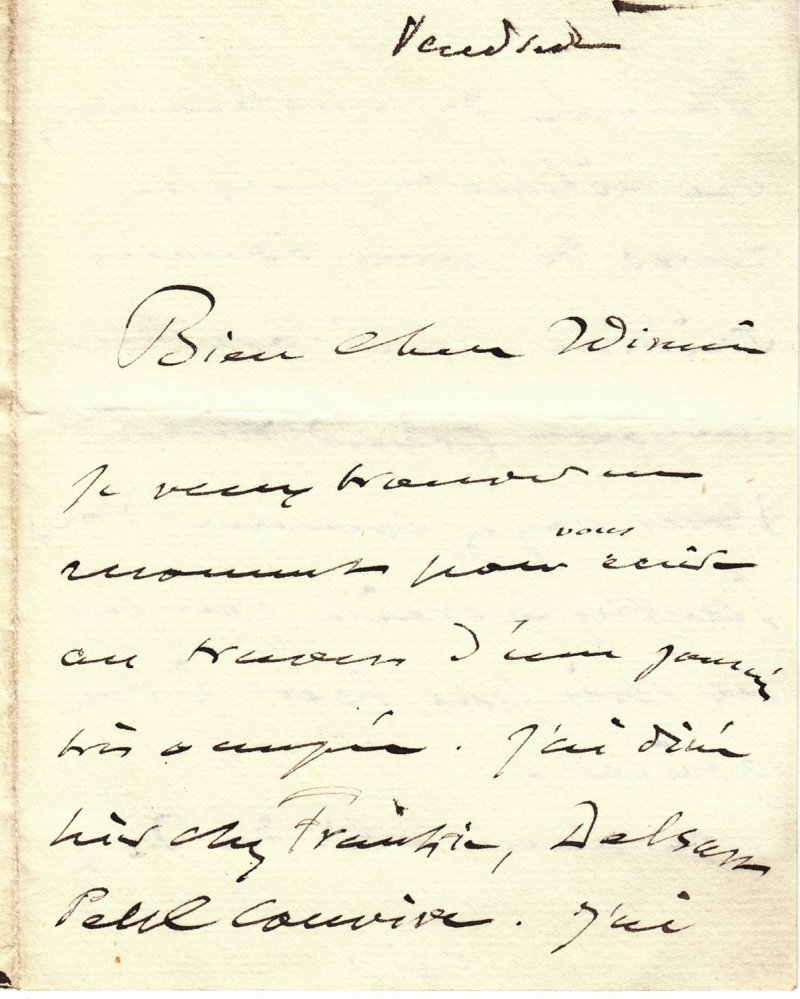 Vendredi
Bien cher
Je veux trouver un
moment pour vous écrire
au travers d'une journée
très occupée. J'ai dîné
hier chez
Petit convive. J'ai